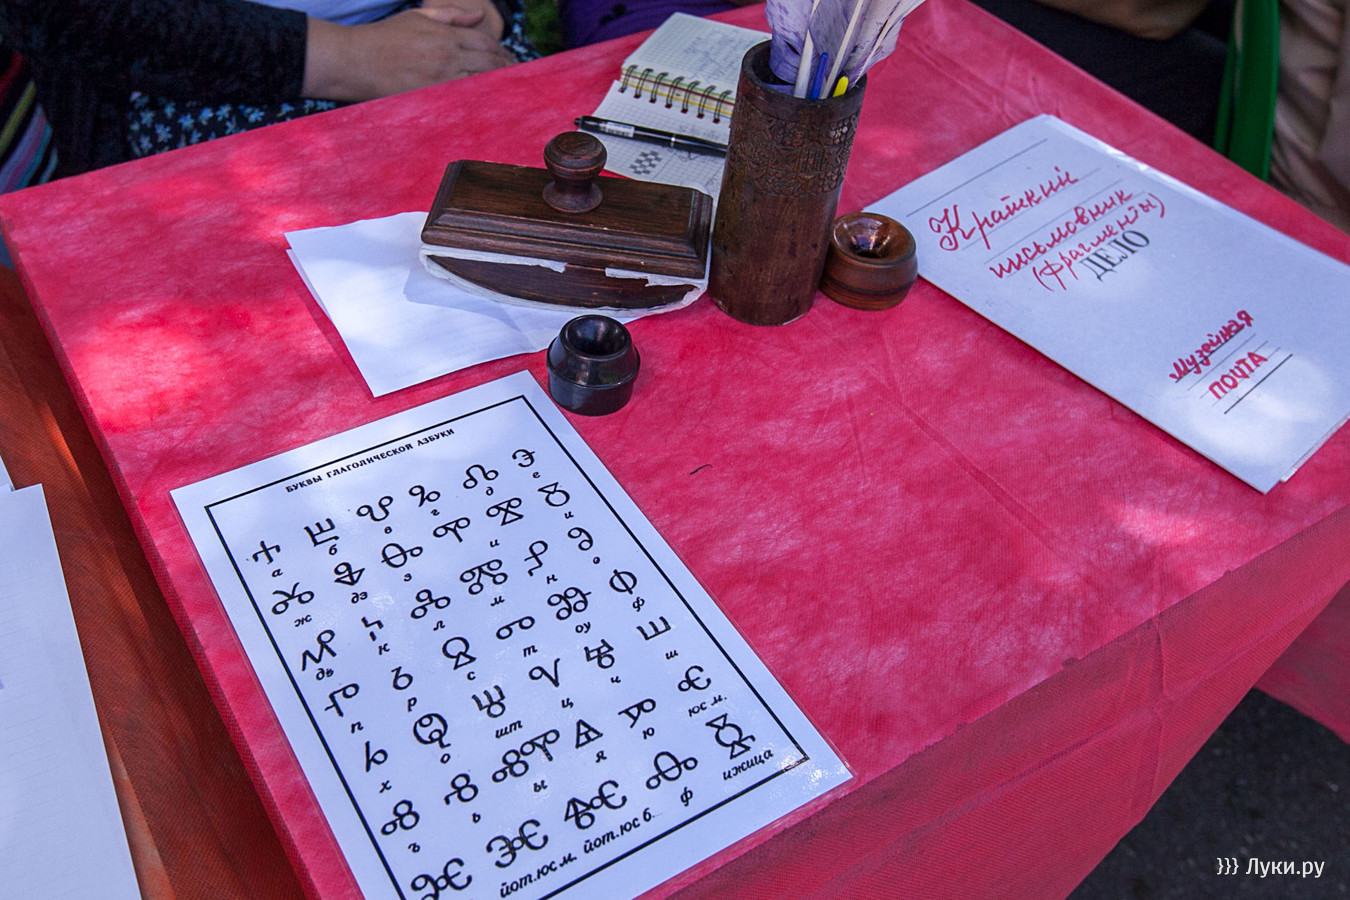 Краткий
письмовник
(фрагменты)
ДЕЛО
Музейная
ПОЧТА
БУКВЫ ГЛАГОЛИЧЕСКОЙ АЗБУКИ
Ⰰ Ⰱ Ⰲ Ⰳ Ⰴ Ⰵ
а б в г д е
Ⰶ Ⰷ Ⰸ Ⰹ Ⰻ
ж дз з и и
Ⰼ Ⰽ Ⰾ Ⰿ Ⱀ Ⱁ
дь к л м н о
Ⱂ Ⱃ Ⱄ Ⱅ Ⱆ Ⱇ
п р с т оу ф
Ⱈ Ⱉ Ⱋ Ⱌ Ⱍ Ⱎ
х о шт ц ч ш
Ⱏ Ⱐ ⰟⰊ Ⱑ Ⱓ Ⱔ
ъ ь ы я ю юс м.
Ⱘ Ⱗ Ⱙ Ⱚ Ⱛ
йот.юс м. йот.юс б. ф ижица
}}} Луки.ру